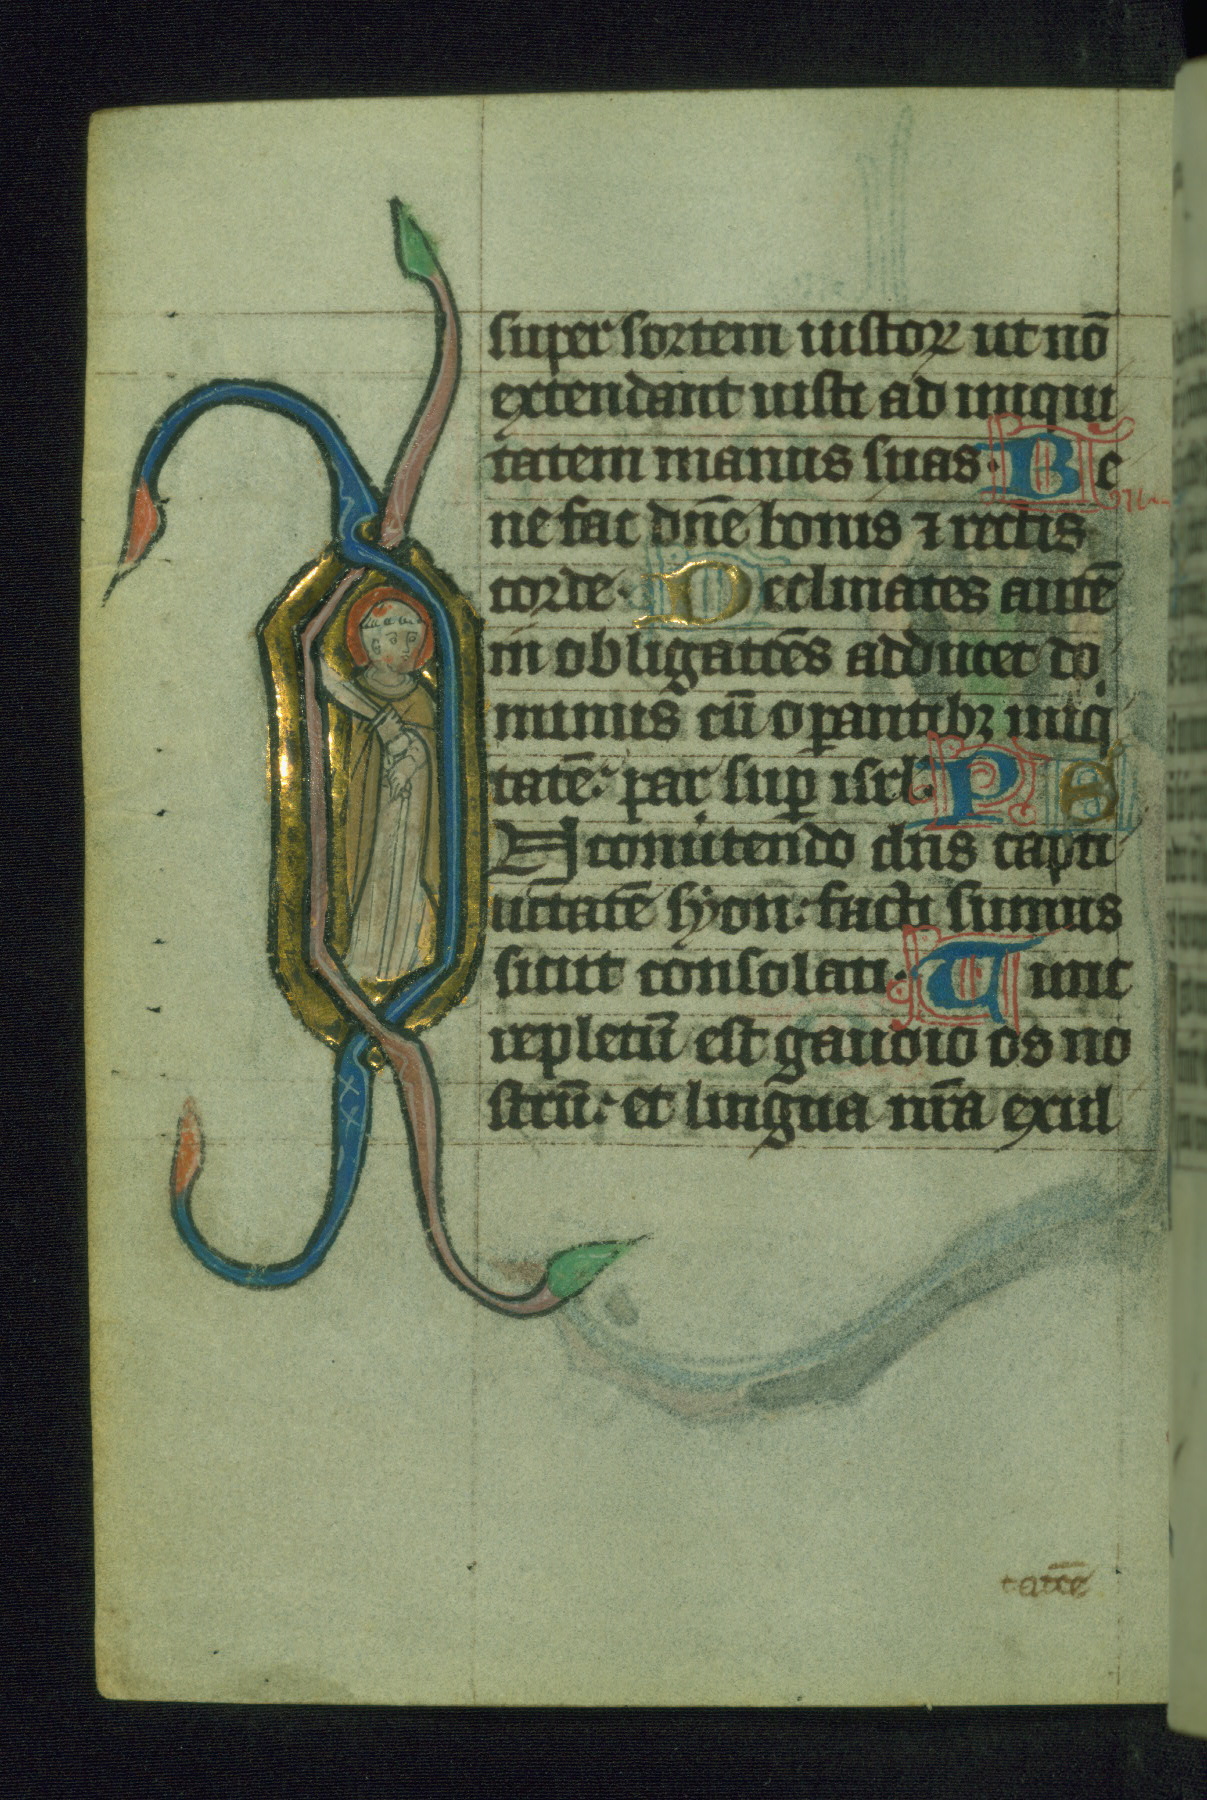 super sortem iustoꝝ ut nō
extendant iusti ad iniqui
tatem manus suas· Be
ne fac dn̄e bonis ⁊ rectis
corde· Declinates autē
in obligatiōs adducet do
minus cū oꝑantibꝫ iniqͥ
tatē· pax suꝑ isrl· P E
A conuertendo dn̄s capti
uitatē syon· facti sumus
sicut consolati· Tunc
repletū est gaudio os no
strū· et lingua nr̄a exul
tatiōe